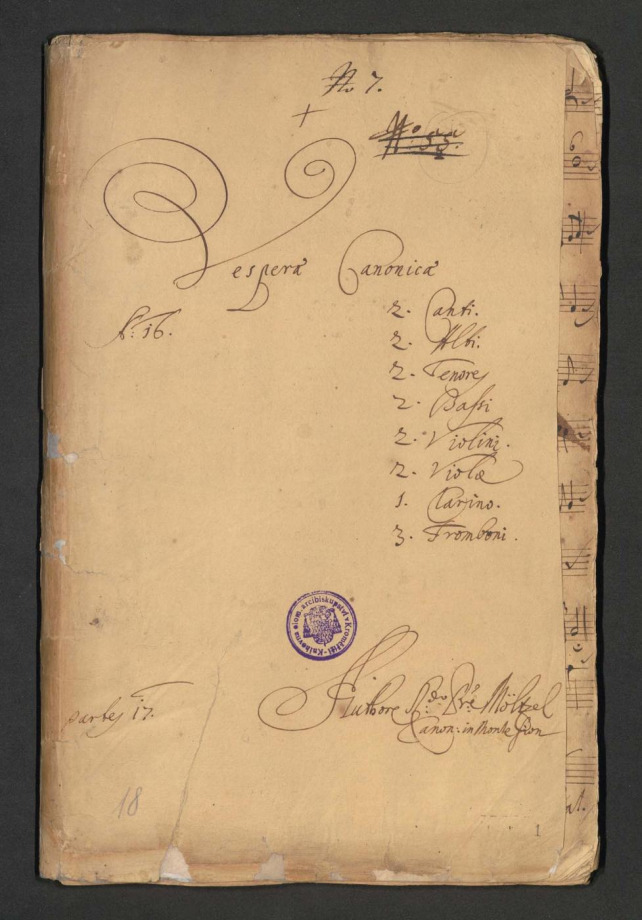 No 7.
No 55.
Vesperæ Canonicæ
A: 16.
2. Canti.
2. Alti.
2. Tenores
2. Bassi
2. Violini.
2. Violæ
1. Clarino.
3. Tromboni.
Knihovna olom. arcibiskupství v Kroměříži
Authore R:do P:re Möltzel
Canon: in Monte Sion
partes 17.
18
1